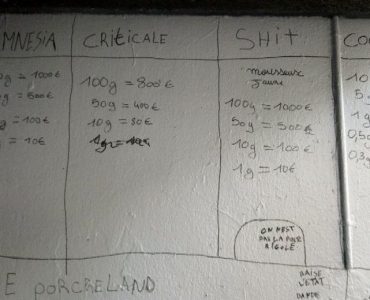 MNESIA
g = 1000€
g = 500€
g = 100€
= 10€
CRITICALE
100g = 800€
50g = 400€
10g = 80€
SHIT
mousseux
jaune
100g = 1000€
50g = 500€
10g = 100€
1g = 10€
CO
10
5g
1g
0,5
0,3g
ON N'EST
PAS LA POUR
RIGOLÉ
E PORCRELAND
BAISE
L'ETAT
BANDE